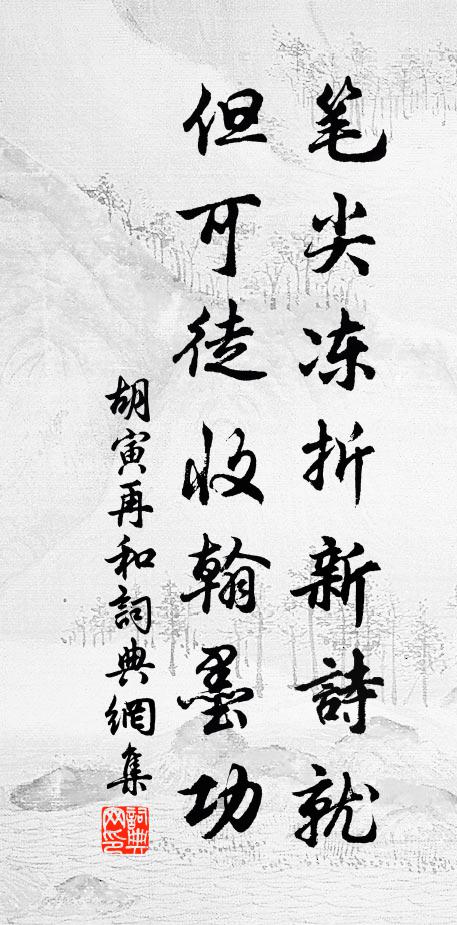 笔尖冻折新詩就
但可徒收翰墨功
胡寅再和詞典網集
詞典網印